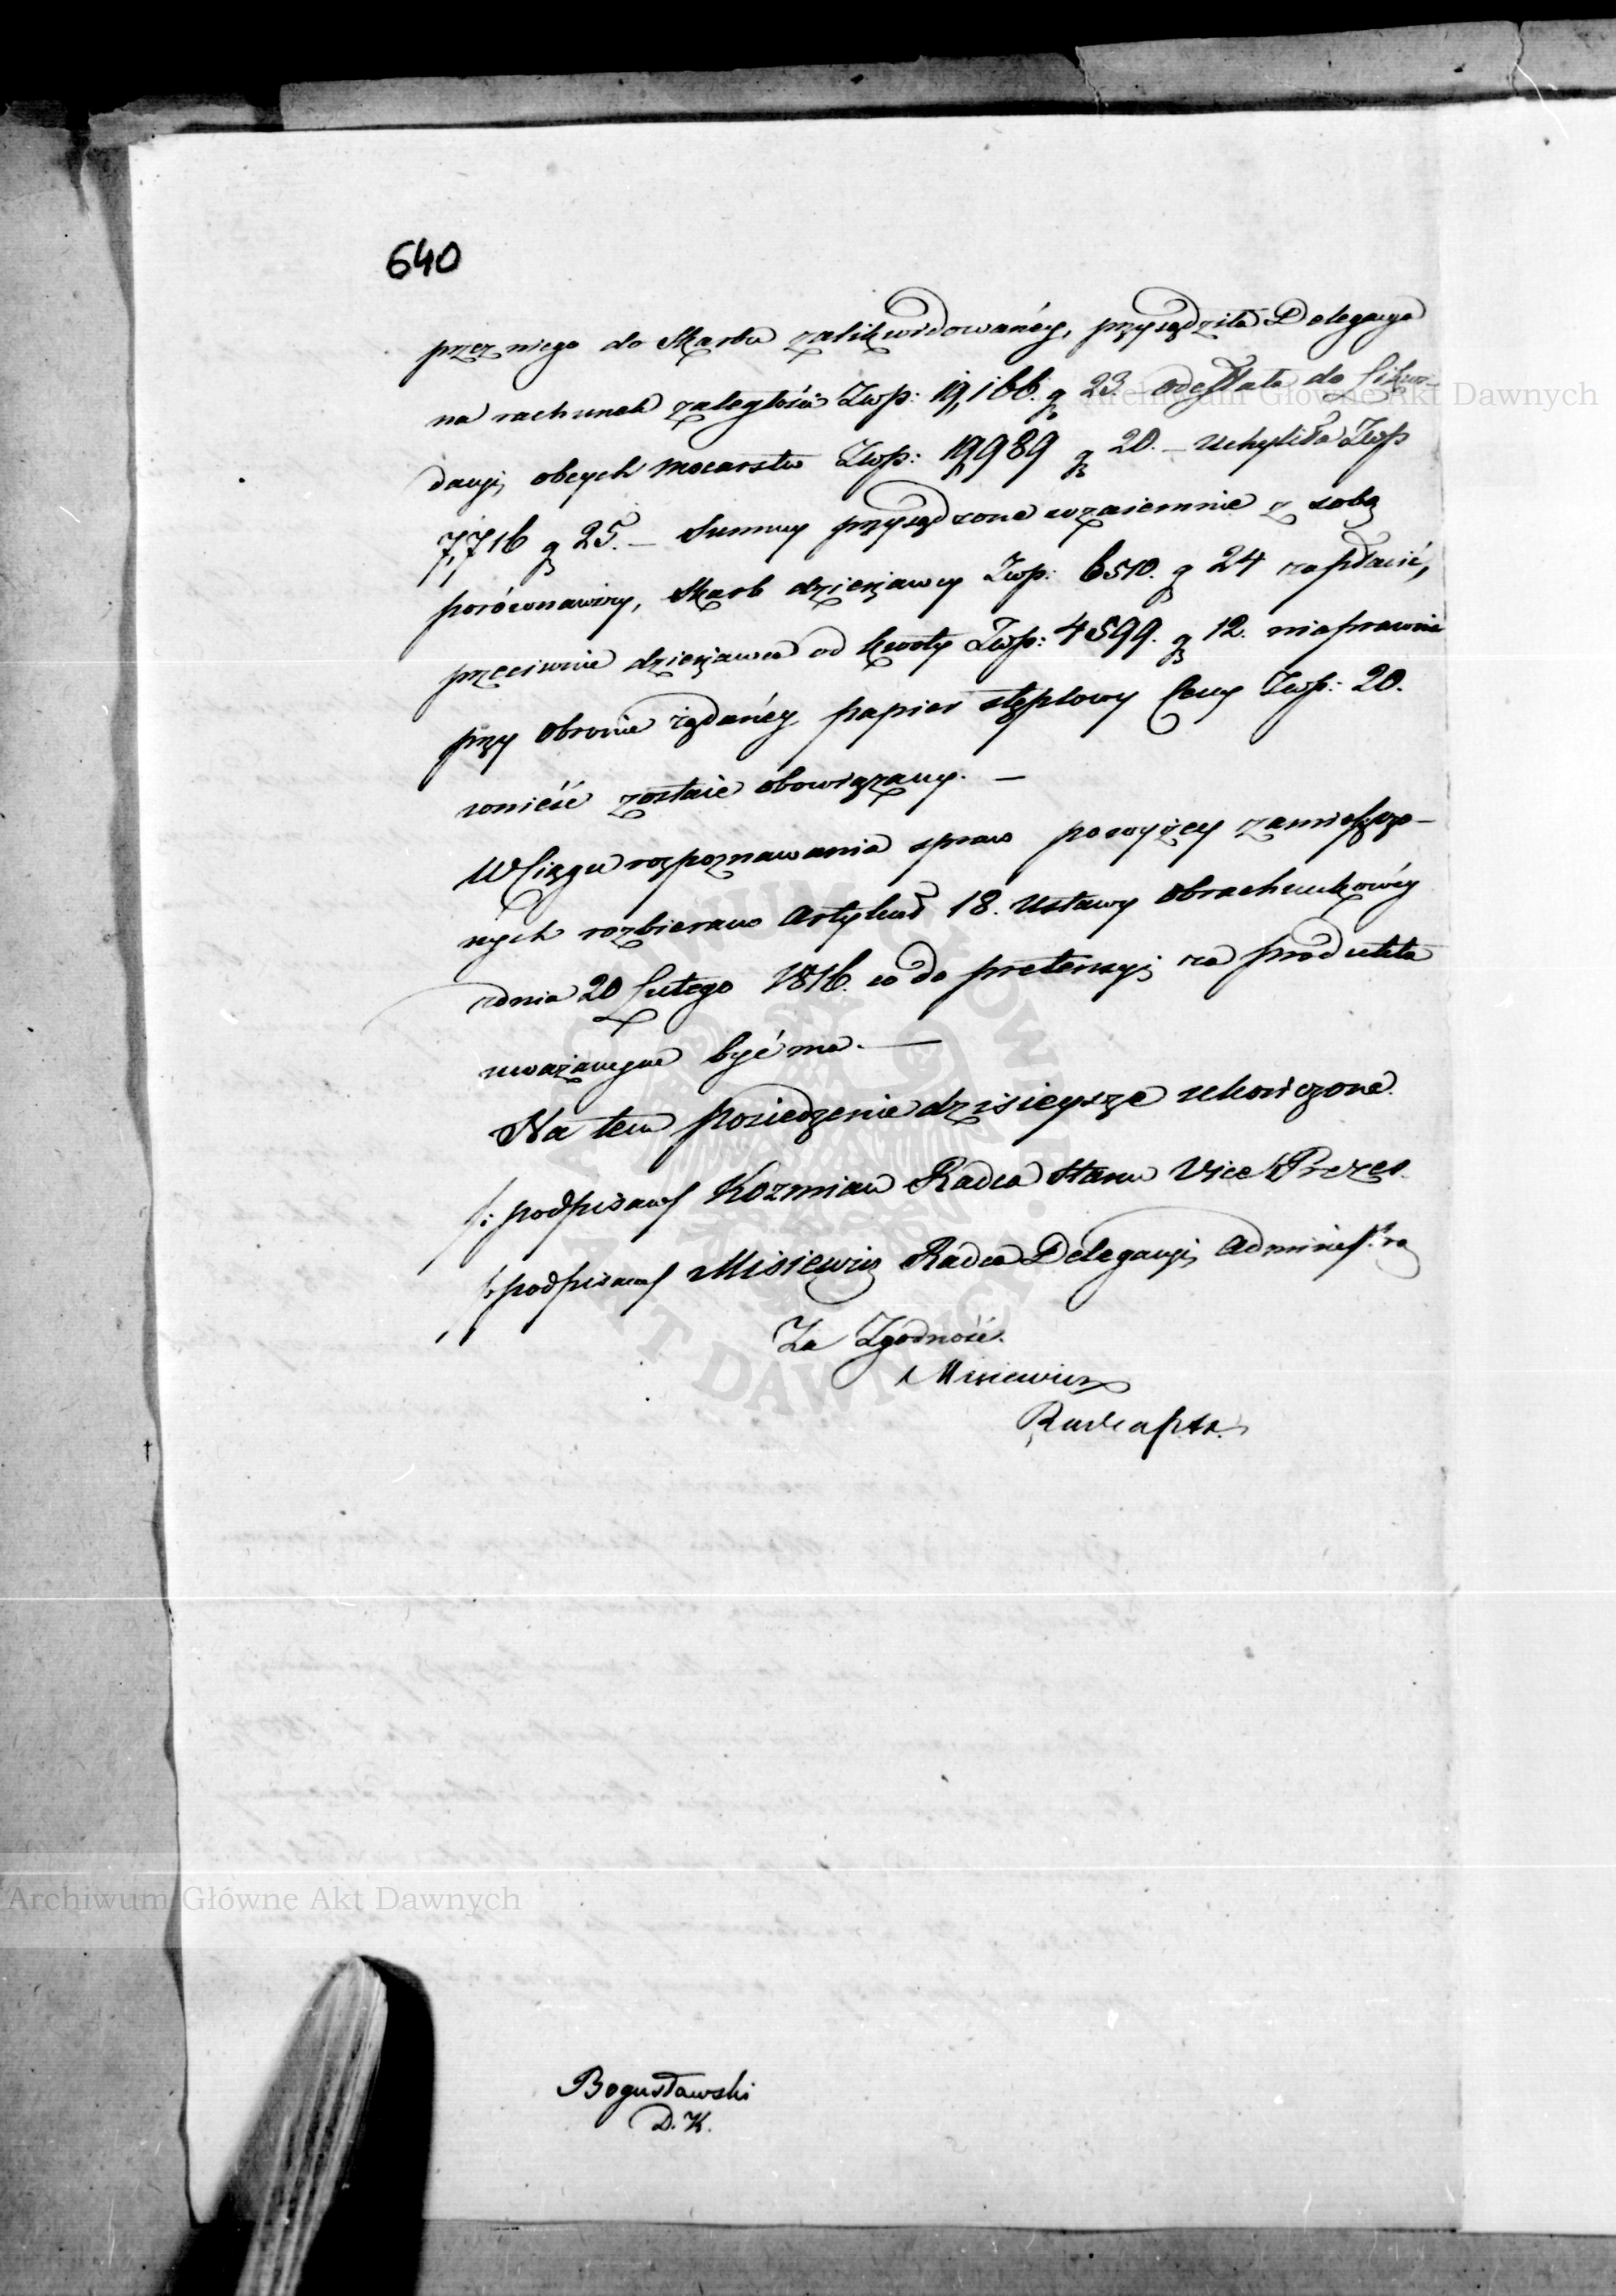 640
przez niego do Skarbu zalikwidowanéy, przysądziła Delegacya
na rachunek zaległości Zwp: 19,166. g 23. odesłała do Likwi-
dacyi obcych mocarstw Zwp: 19,989 g 20. – uchyliła Zwp
7,716 g 25. – Summy przysądzone wzaiemnie z sobą
porównawszy, Skarb dzierżawcy Zwp: 6510. g 24 zapłacić,
przeciwnie dzierżawca od kwoty Zwp: 4599. g 12. niaprawnie
przy obronie żądanéy papier stęplowy Ceny Zwp: 20.
wnieść zostaie obowiązany. –
W Ciągu rozpoznawania spraw powyżey zamieszczo-
nych rozbierano Artykuł 18. Ustawy obrachunkowéy
zdnia 20 Lutego 1816. co do pretensyi za produkta
uważanym być ma. –
Na tem posiedzenie dzisieysze ukończone.
/: podpisany/ Kozmian Radca Stanu Vice Prezes.
/: podpisany/ Misiewicz Radca Delegacyi Administra
Za Zgodność.
Misiewicz
Bogusławski
D. K.
Archiwum Główne Akt Dawnych
Archiwum Główne Akt Dawnych